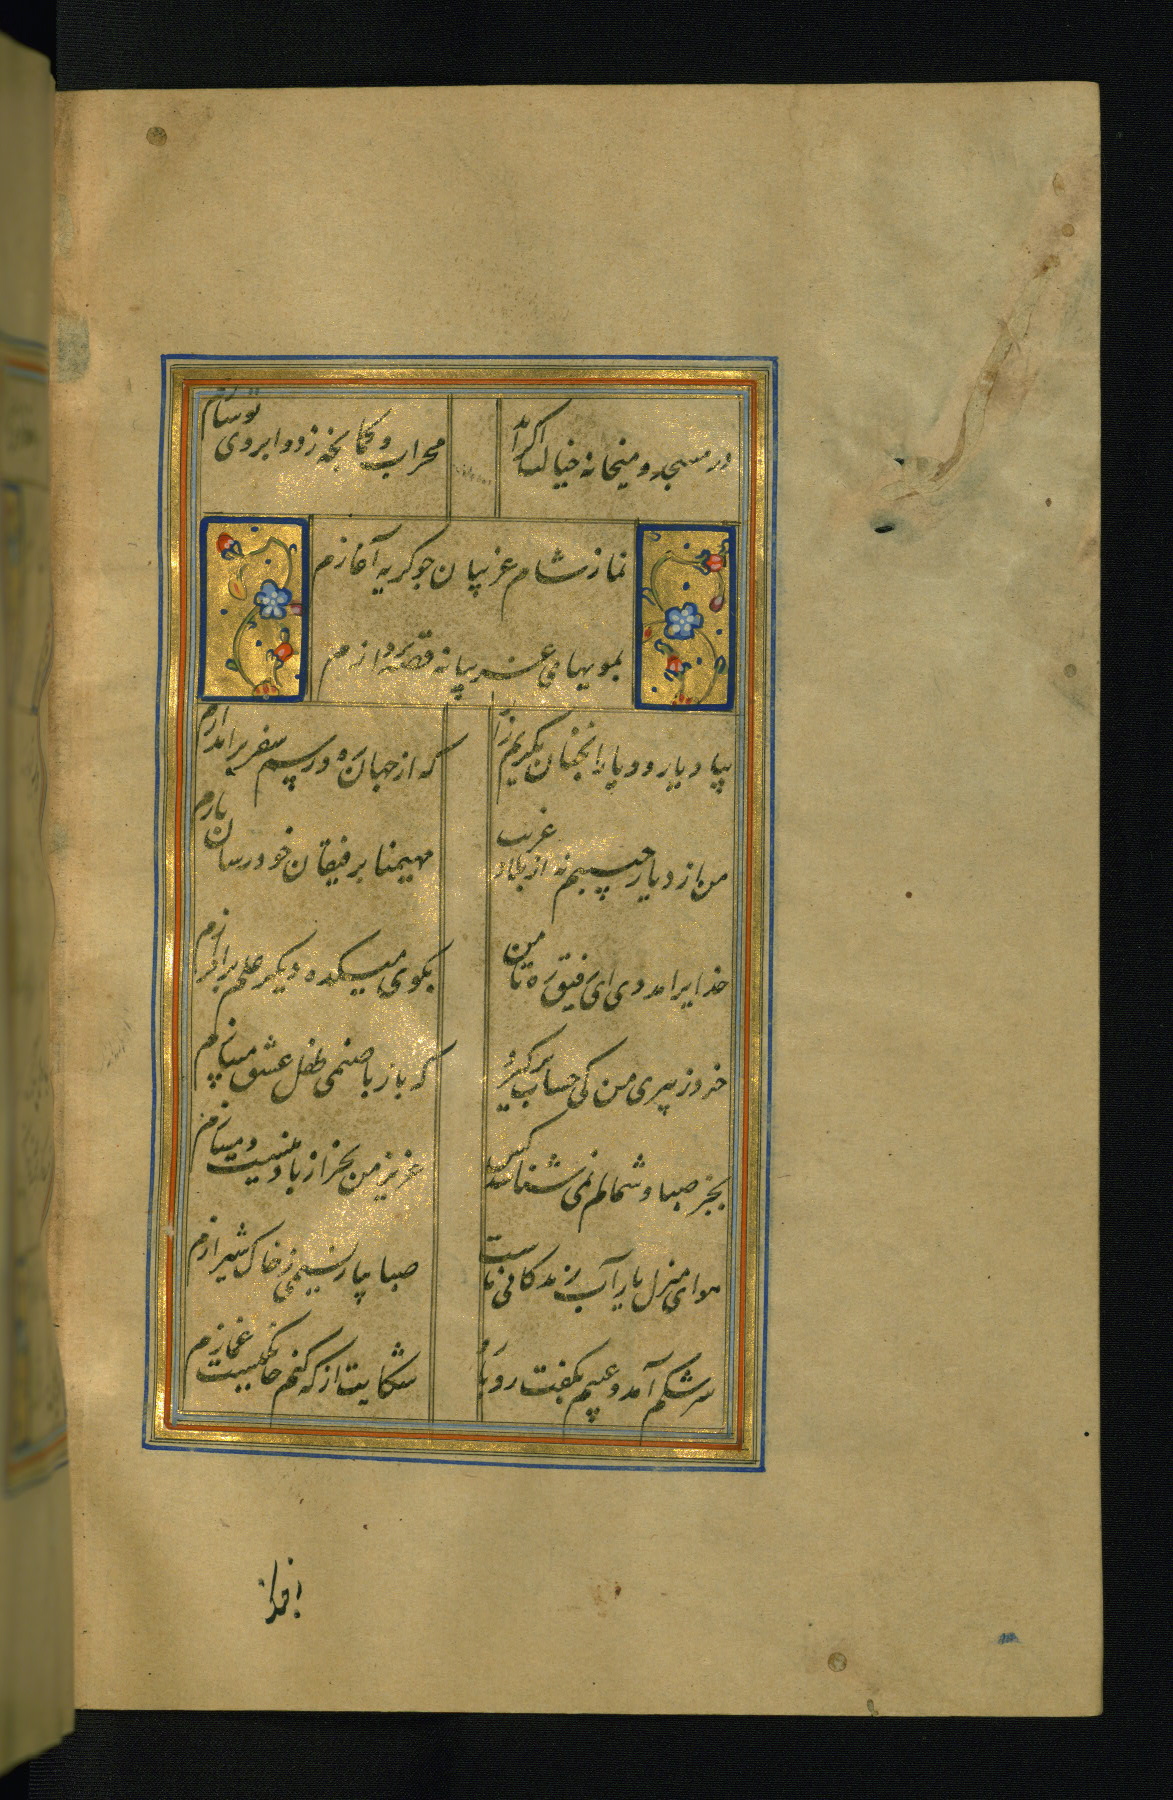 در مسجد و میخانه خیالت اکر آید
محراب و کمانچه ز دو ابروی تو سازم
نماز شام غریبان چو کریه آغازم
بمویهای غریبانه قصه پردازم
بیاد یار و دیار انچنان بکریم زار
که از جهان ره و رسم سفر براندازم
من از دیار حبیبم نه از بلاد غریب
مهیمنا برفیقان خود رسان بازم
خدایرا مددی ای رفیق ره تا من
بکوی میکده دیکر علم برافرازم
خرد ز پیری من کی حساب برکیرد
که باز با صنمی طفل عشق میبازم
بجز صبا و شمالم نمی شناسد کس
عزیز من بجز از باد نیست دمسازم
هوای منزل یار آب زندکانی ماست
صبا بیار نسیمی ز خاک شیرازم
سرشکم آمد و عیبم بکفت رو با رو
شکایت از که کنم خانکیست غمازم